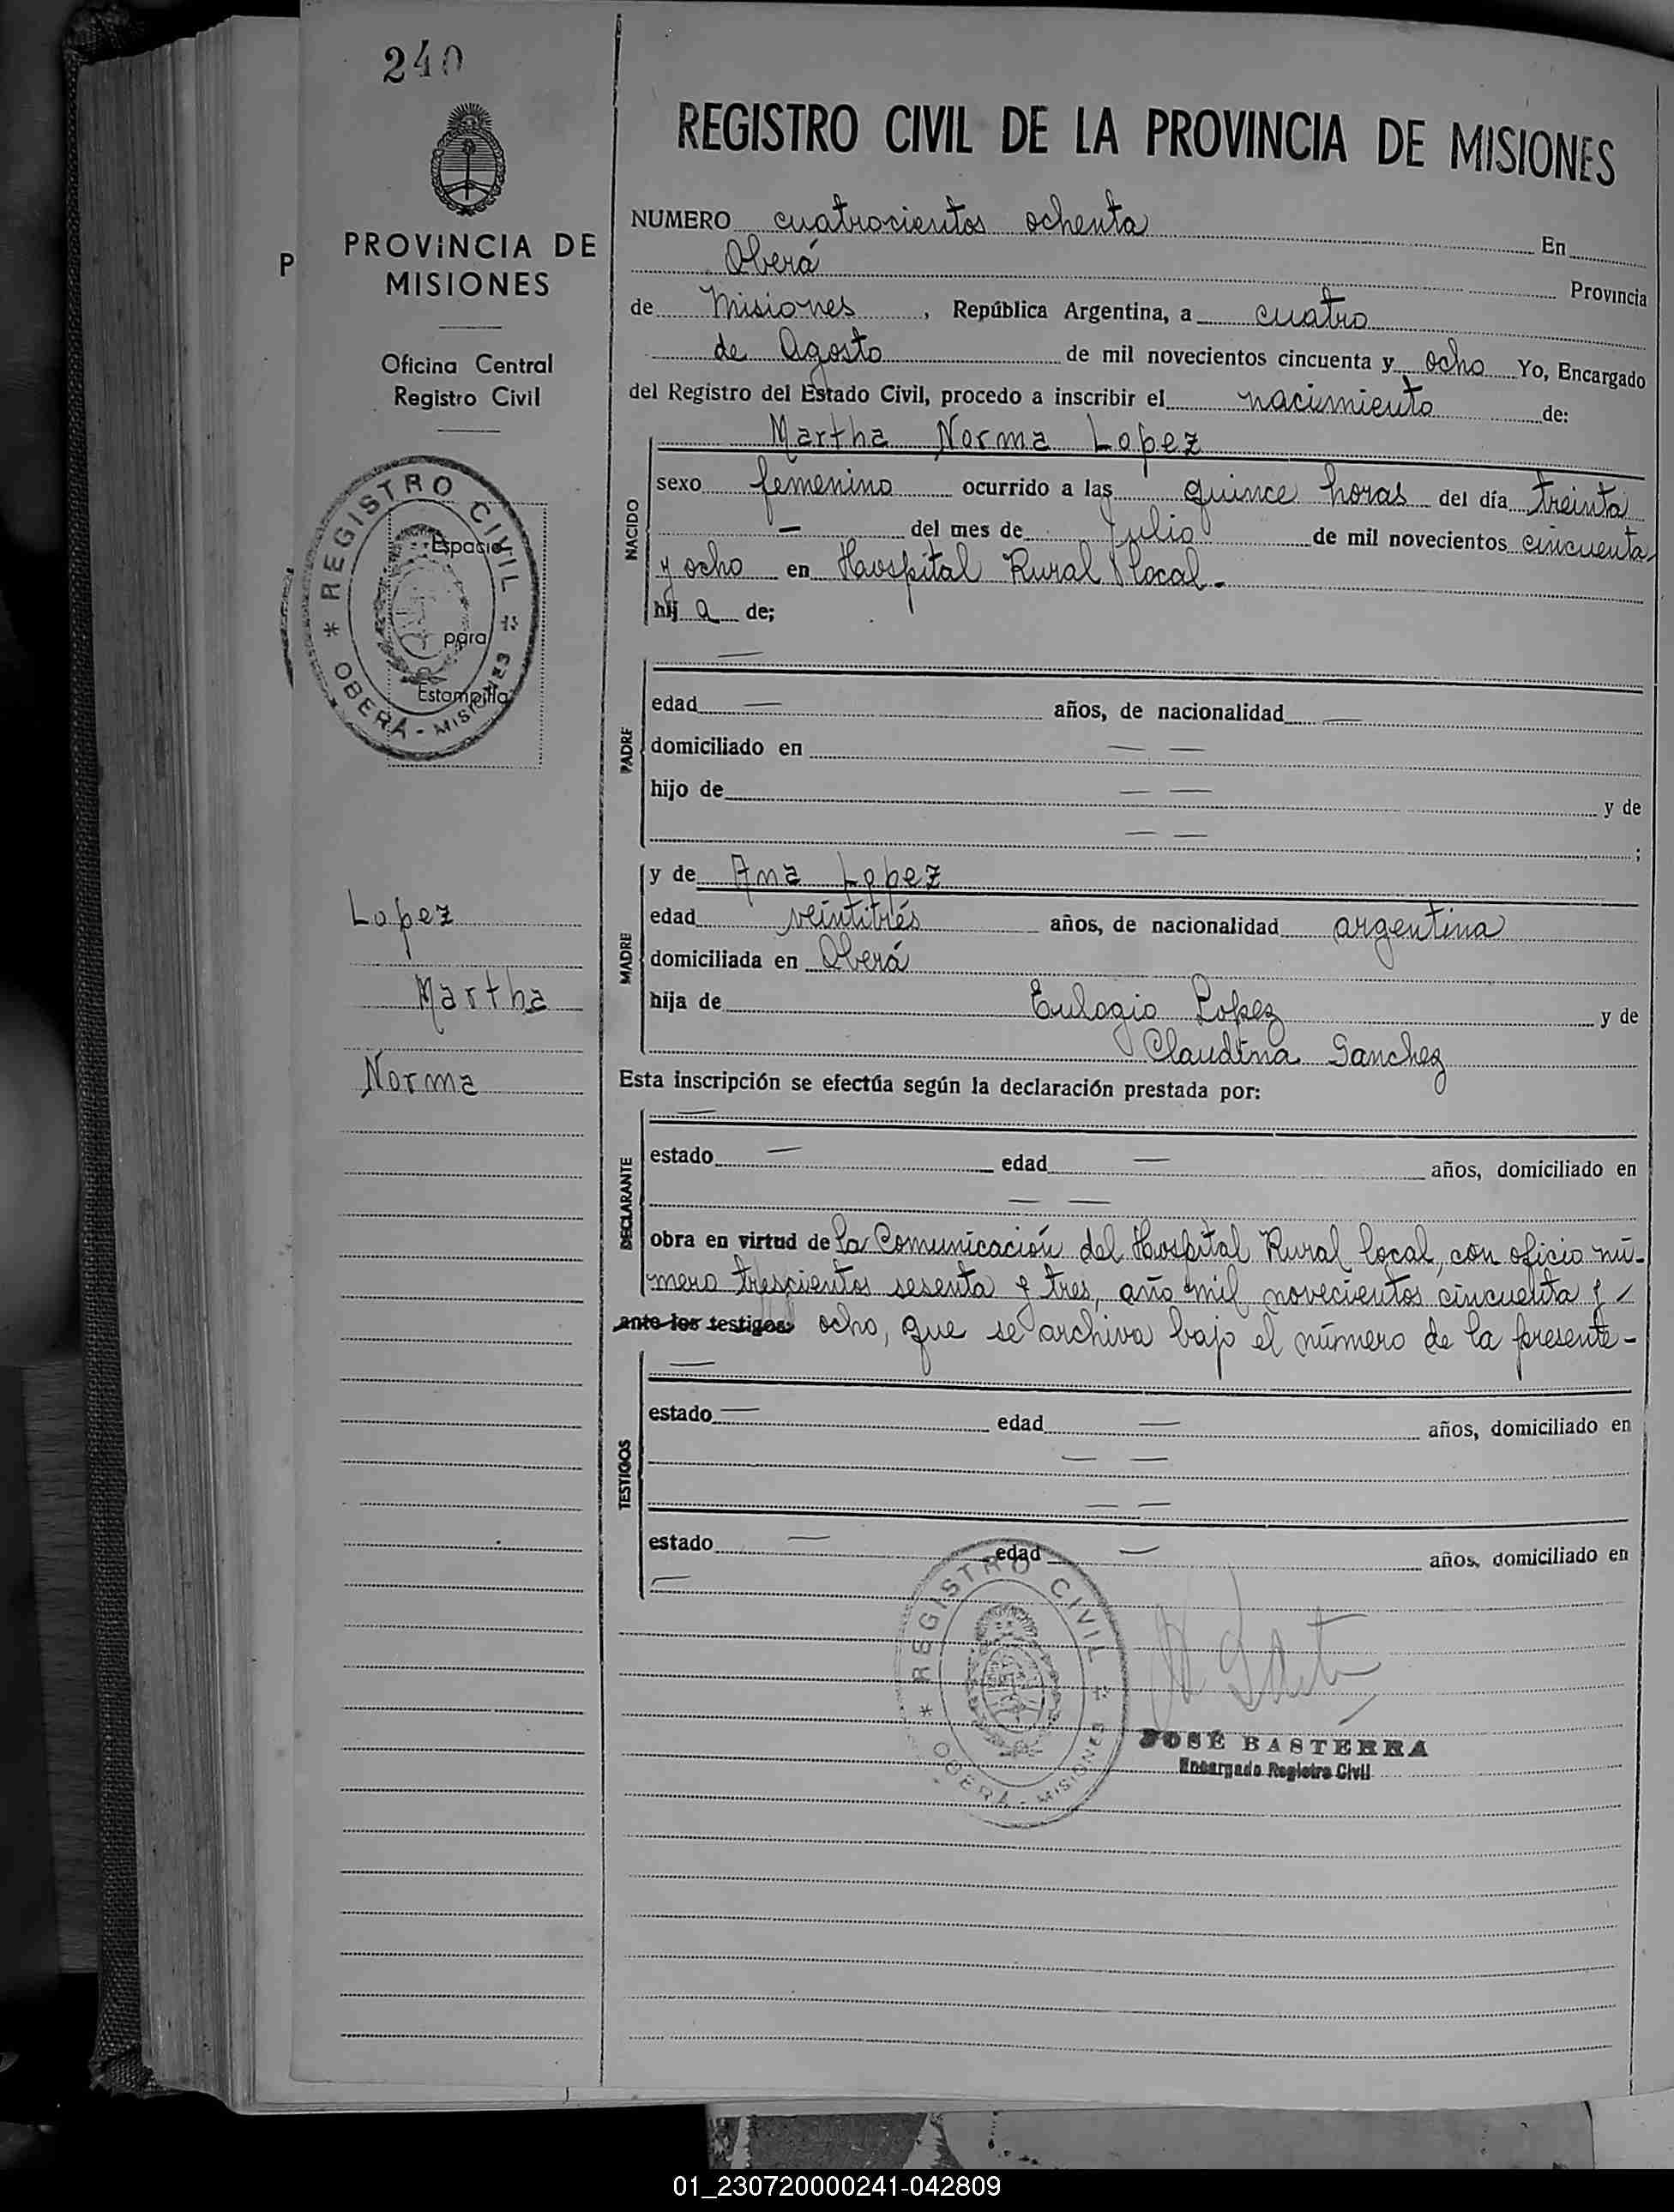 240
PROVINCIA DE
MISIONES
Oficina Central
Registro Civil
REGISTRO CIVIL
OBERÁ - MISIONES
Espacio
para
Estampilla
P
Lopez
Martha
Norma
REGISTRO CIVIL DE LA PROVINCIA DE MISIONES
NUMERO cuatrocientos ochenta En
Oberá Provincia
de Misiones, República Argentina, a cuatro
de Agosto de mil novecientos cincuenta y ocho Yo, Encargado
del Registro del Estado Civil, procedo a inscribir el nacimiento de:
Martha Norma Lopez
NACIDO
sexo femenino ocurrido a las quince horas del día treinta
— del mes de Julio de mil novecientos cincuenta
y ocho en Hospital Rural local.-
hij a de;
PADRE
—
edad — años, de nacionalidad —
domiciliado en — —
hijo de — — y de
— — ;
MADRE
y de Ana Lopez
edad veintitrés años, de nacionalidad argentina
domiciliada en Oberá
hija de Eulogio Lopez y de
Claudina Sanchez
Esta inscripción se efectúa según la declaración prestada por:
DECLARANTE
—
estado — edad — años, domiciliado en
— —
obra en virtud de la Comunicación del Hospital Rural local, con oficio nú-
mero trescientos sesenta y tres, año mil novecientos cincuenta y
ante los testigos: ocho, que se archiva bajo el número de la presente-
TESTIGOS
—
estado — edad — años, domiciliado en
— —
— —
estado — edad — años, domiciliado en
—
REGISTRO CIVIL
OBERÁ - MISIONES
JOSÉ BASTERRA
Encargado Registro Civil
01_230720000241-042809